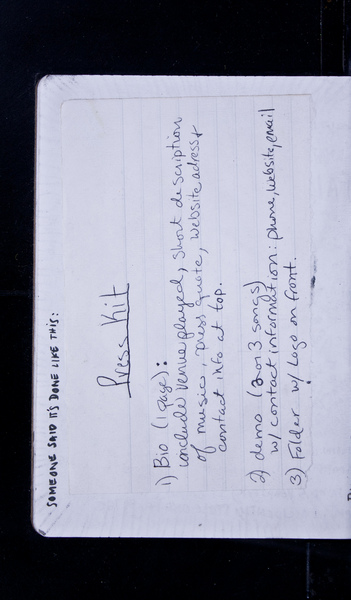 SOMEONE SAID IT'S DONE LIKE THIS:
Press Kit
1) Bio (1 page):
include venue played, short description
of music, press quote, website adress +
contact info at top.
2) demo (2 or 3 songs)
w/ contact information: phone, website, email
3) Folder w/ Logo on front.